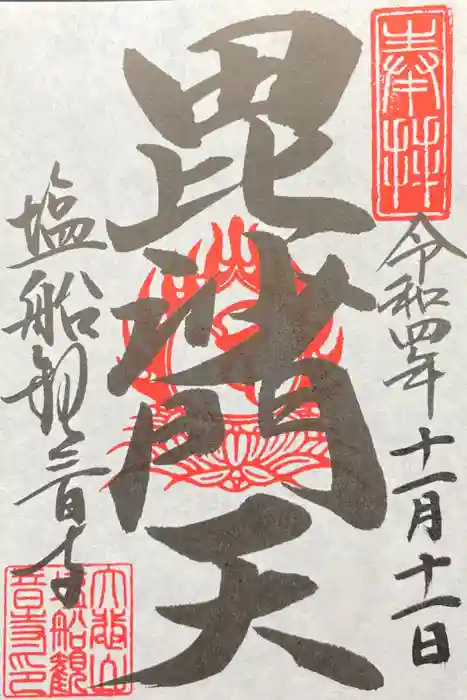 奉拝
令和四年十一月十一日
毘沙門天
塩船観音寺
大悲山
塩船観
音寺印